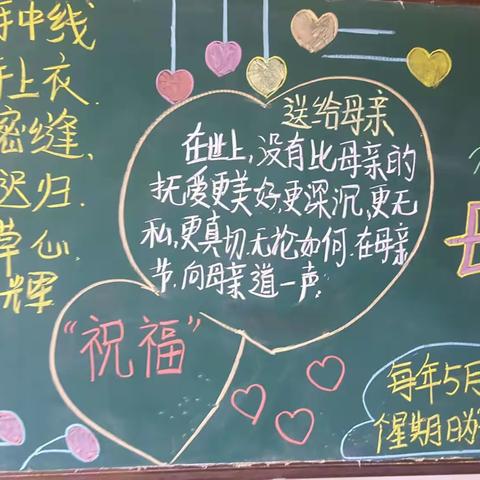 中线
上衣.
密缝,
迟归.
草心,
辉
送给母亲
在世上,没有比母亲的
抚爱更美好,更深沉,更无
私,更真切.无论如何.在母亲
节,向母亲道一声:
“祝福”
每年5月
星期日为